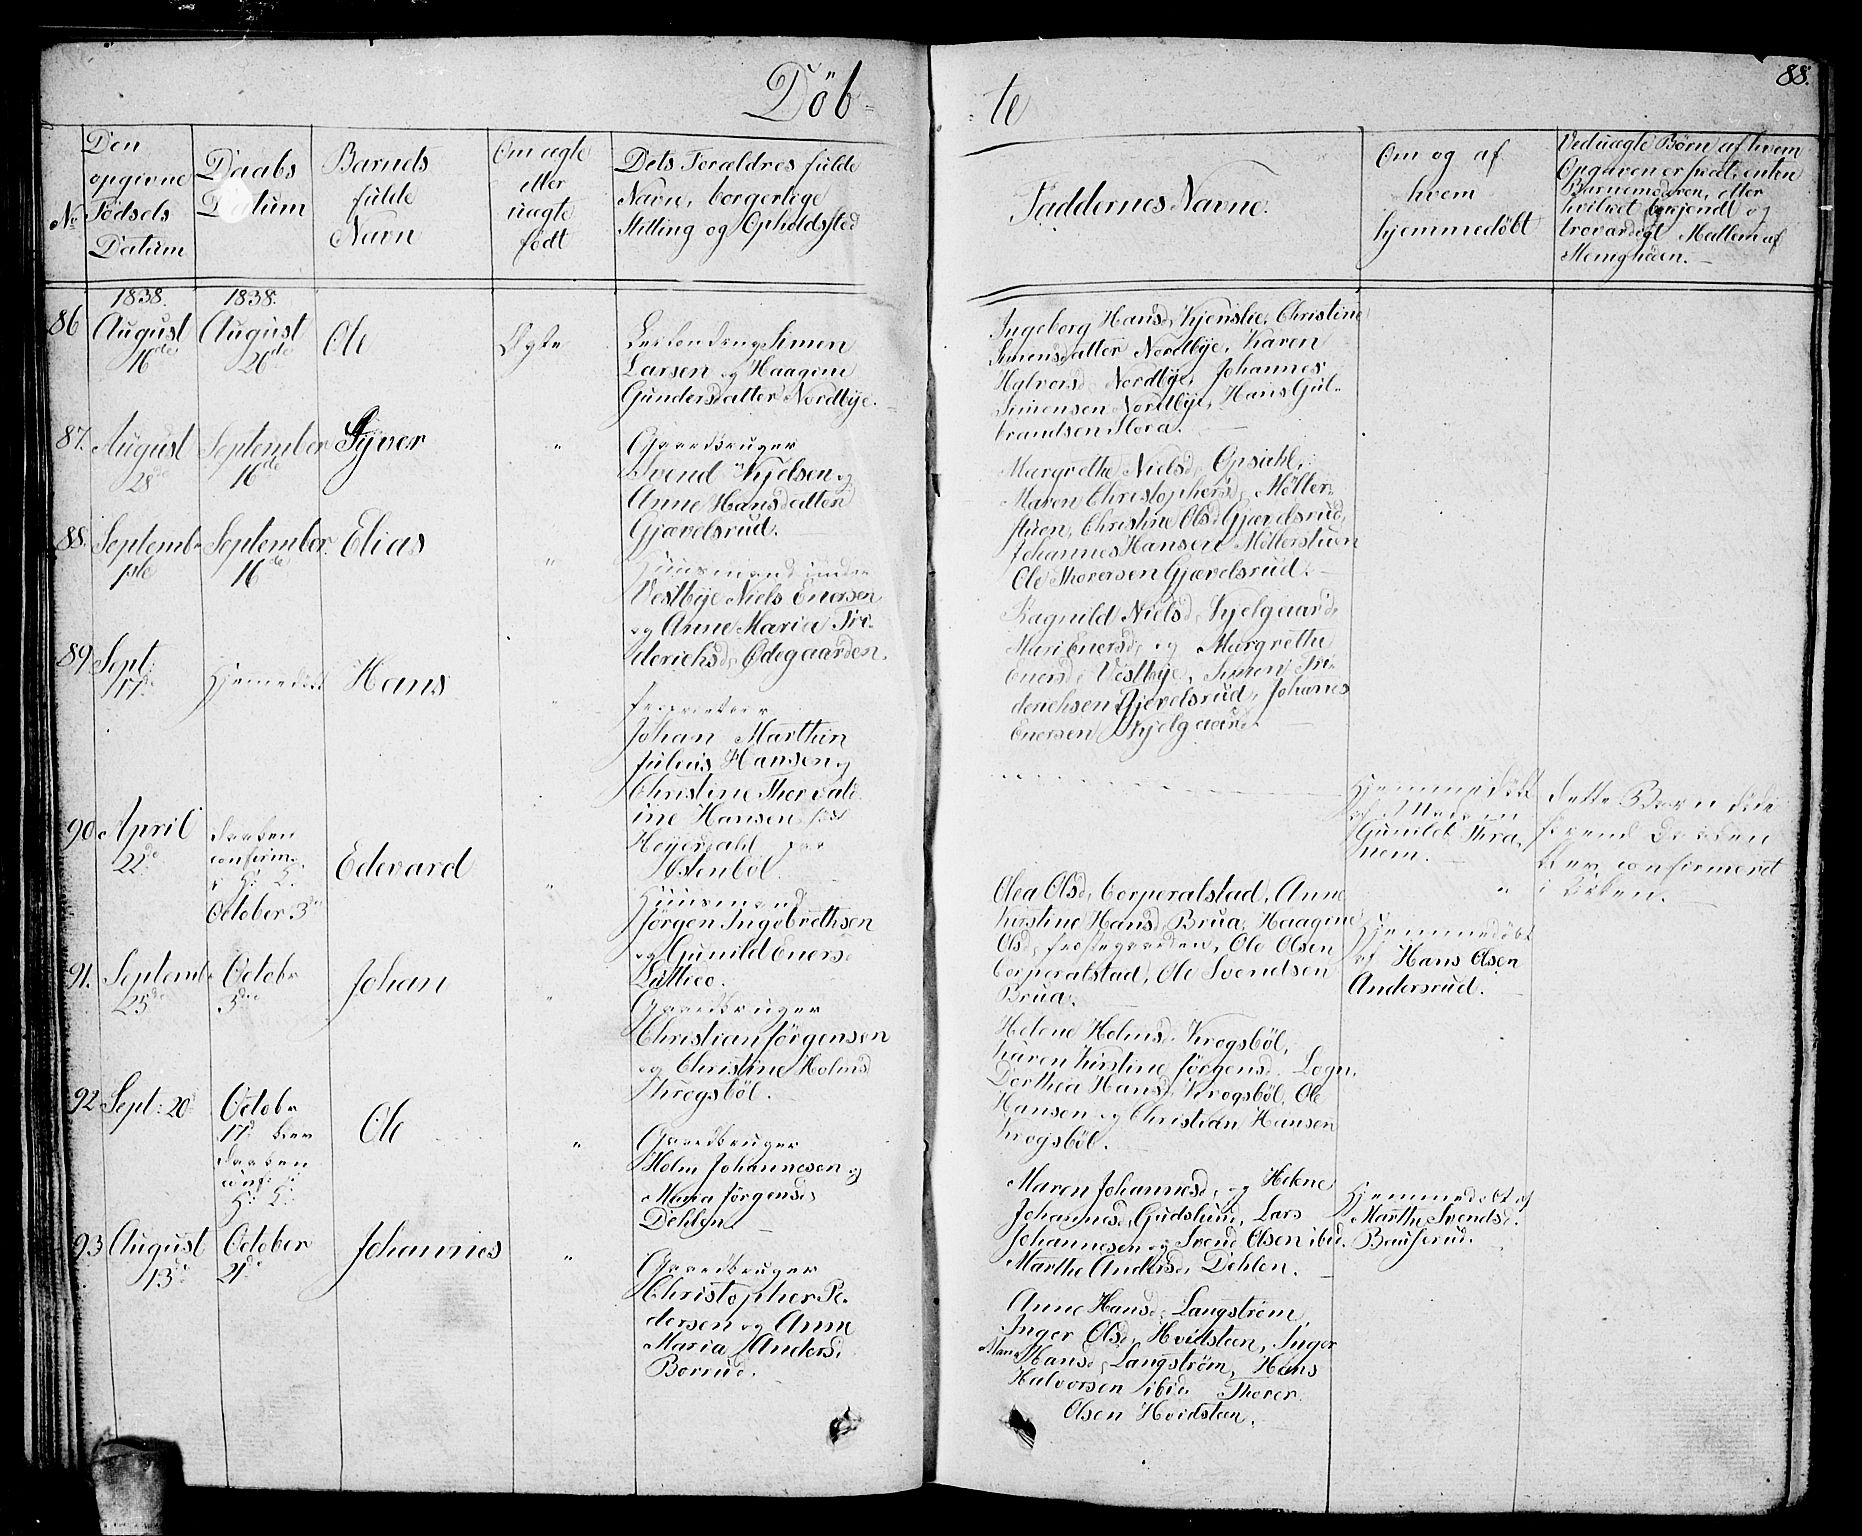 88.
Döb=
=te
No
Den opgivne Födsels Datum
Daabs Datum
Barnets fulde Navn
Om ægte eller uægte født
Dets Forældres fulde Navn, borgerlige Stilling og Opholdssted
Faddernes Navne.
Om og af hvem hjemmedöbt
Ved uægte Børn af hvem
Opgaven er skeet, enten
Barnemoderen, eller
hvilket bekjendt og
troværdigt Medlem af
Menigheden.
86
1838.
August
16de
1838.
August
26de
Ole
Ægte
Simen
Larsen og Haagine
Gundersdatter Nordbye.
Ingeborg Hansd. Kjenslie, Christine
Simensdatter Nordbye, Karen
Halvorsd. Nordbye, Johannes
Simensen Nordbye, Hans Gul-
brandsen Flora.
87.
August
28de
September
16de
Syver
"
Gaardbruger
Svend Kjelsen og
Anne Hansdatter
Gjævelsrud.
Margrethe Nielsd. Opsahl,
Maren Christophersd. Möller-
stuen, Christine Olsd. Gjævelsrud,
Johannes Hansen Möllerstuen
Ole Thoresen Gjævelsrud.
88.
Septemb.
1ste
September.
16de
Elias
"
Huusmand under
Vestbye Niels Enersen
og Anne Maria Fri-
derichsd. Ødegaarden.
Ragnild Nielsd. Kjelgaard,
Mari Enersd. og Margrethe
Enersd. Vestbye, Simen Fri-
derichsen Gjævelsrud, Johanes
Enersen Kjelgaard.
89
Sept:
17de
Hjemedöbt
Hans
"
Proprietair
Johan Marthin
Julius Hansen og
Christine Thorvald
ine Hansen föd
Heyerdahl paa
Østenbol.
Hjemmedöbt
af Madam
Gunild Thra-
nem.
dette Barn döde
forend Daaben
blev confirmeret
i Kirken.
90
April
22de
Daaben
confirm.
October 3de
Edevard
"
Huusmand
Jörgen Ingebrethsen
og Gunild Eners.
Olea Olsd. Corporalstad, Anne
Kirstine Hansd. Brua, Haagine
Olsd. Prestegaarden, Ole Olsen
Corporalstad, Ole Svendsen
Brua.
"
Hjemmedöbt
af Hans Olsen
Andersrud.
91.
Septemb.
25de
Octobr
3die
Johan
"
Gaardbruger
Christian Jörgensen
og Christine Holmsd
Krogsböl.
Helene Holmsd. Krogsböl,
Karen Kirstine Jörgensd. Logn,
Dorthea Hansd. Krogsböl, Ole
Hansen og Christian Hansen
Krogsböl.
92
Sept: 20
Octobr
17de blev
Daaben
conf. i
Ole
"
Gaardbruger
Holm Johannesen og
Maria Jörgensd.
Dehlen.
Maren Johannesd. og Helene
Johannesd. Gudslund, Lars
Johannesen og Svend Olsen ibid.
Marthe Andersd. Dehlen.
Hjemmedöbt af
Marthe Svendsd.
93
August
13de
October
21de
Johannes
"
Gaardbruger
Christopher Pe-
dersen og Anne
Maria Andersd.
Borrud.
Anne Hansd. Langström,
Inger Olsd. Hvidsteen, Inger
Hansd. Langström, Hans
Halvorsen ibid. Thorer
Olsen Hvidsteen.